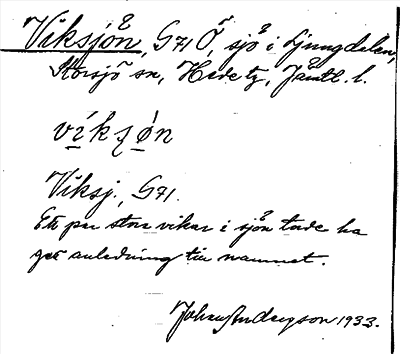 Viksjön, G71 Ö, sjö i Ljungdalen,
Storsjö sn, Hede tg, Jämtl. l.
víkʂø̀n
Viksj., G71.
Ett par stora vikar i sjön torde ha
get anledning till namnet.
Johan Anderzson 1933.